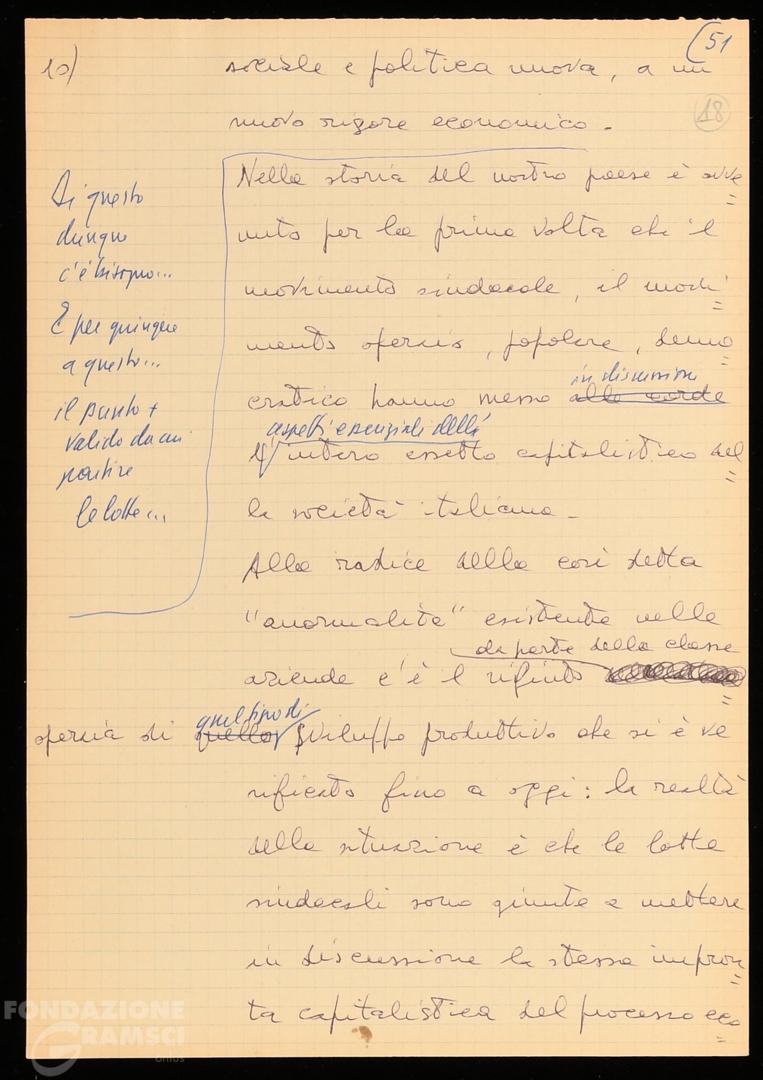 10)
51
18
sociale e politica nuova, a un
nuovo rigore economico.
Nella storia del nostro paese è avve
nuto per la prima volta che il
movimento sindacale, il movi
mento operaio, popolare, demo
cratico hanno messo alle corde
in discussione
aspetti essenziali dell'
l'intero assetto capitalistico del
la società italiana.
Alla radice della così detta
"anormalità" esistente nelle
da parte della classe
aziende c'è il rifiuto
operaia di quello sviluppo produttivo che si è ve
quel tipo di
rificato fino a oggi: la realtà
della situazione è che le lotte
sindacali sono giunte a mettere
in discussione la stessa impron
ta capitalistica del processo eco
Di questo
dunque
c'è bisogno...
E per giungere
a questo...
il punto +
valido da cui
partire
le lotte...
FONDAZIONE
GRAMSCI
onlus